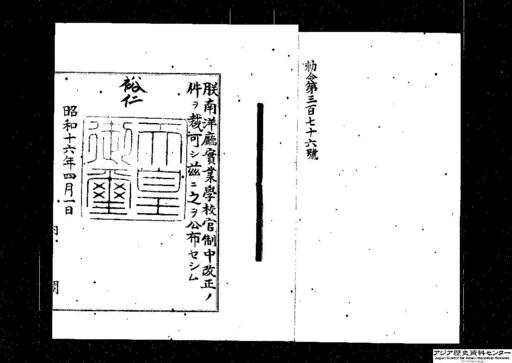 勅令第三百七十六號
朕南洋廳實業學校官制中改正ノ
件ヲ裁可シ茲ニ之ヲ公布セシム
裕仁
天皇
御璽
昭和十六年四月一日
内閣
アジア歴史資料センター
Japan Center for Asian Historical Records